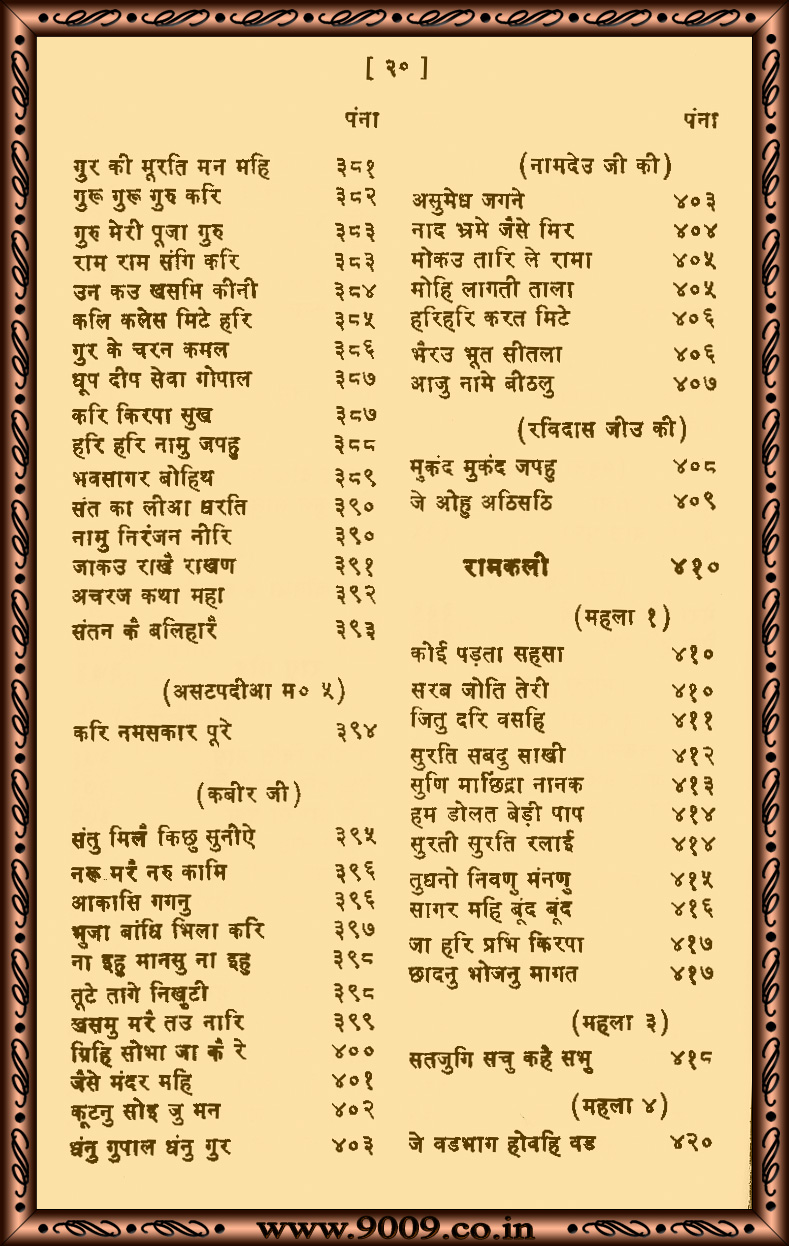 [ २० ]
पंना
गुर की मूरति मन महि ३८१
गुरू गुरू गुरु करि ३८२
गुरु मेरी पूजा गुरु ३८३
राम राम संगि करि ३८३
उन कउ खसमि कीनी ३८४
कलि कलेस मिटे हरि ३८५
गुर के चरन कमल ३८६
धूप दीप सेवा गोपाल ३८७
करि किरपा सुख ३८७
हरि हरि नामु जपहु ३८८
भवसागर बोहिथ ३८९
संत का लीआ धरति ३९०
नामु निरंजन नीरि ३९०
जाकउ राखै राखण ३९१
अचरज कथा महा ३९२
संतन कै बलिहारै ३९३
(असटपदीआ म० ५)
करि नमसकार पूरे ३९४
(कबीर जी)
संतु मिलै किछु सुनीऐ ३९५
नरू मरै नरु कामि ३९६
आकासि गगनु ३९६
भुजा बांधि भिला करि ३९७
ना इहु मानसु ना इहु ३९८
तूटे तागे निखुटी ३९८
खसमु मरै तउ नारि ३९९
ग्रिहि सोभा जा कै रे ४००
जैसे मंदर महि ४०१
कूटनु सोइ जु मन ४०२
धंनु गुपाल धंनु गुर ४०३
पंना
(नामदेउ जी की)
असुमेध जगने ४०३
नाद भ्रमे जैसे मिर ४०४
मोकउ तारि ले रामा ४०५
मोहि लागती ताला ४०५
हरिहरि करत मिटे ४०६
भैरउ भूत सीतला ४०६
आजु नामे बीठलु ४०७
(रविदास जीउ की)
मुकंद मुकंद जपहु ४०८
जे ओहु अठिसठि ४०९
रामकली ४१०
(महला १)
कोई पड़ता सहसा ४१०
सरब जोति तेरी ४१०
जितु दरि वसहि ४११
सुरति सबदु साखी ४१२
सुणि माछिंद्रा नानक ४१३
हम डोलत बेड़ी पाप ४१४
सुरती सुरति रलाई ४१४
तुधनो निवणु मंनणु ४१५
सागर महि बूंद बूंद ४१६
जा हरि प्रभि किरपा ४१७
छादनु भोजनु मागत ४१७
(महला ३)
सतजुगि सचु कहै सभु ४१८
(महला ४)
जे वडभाग होवहि वड ४२०
www.9009.co.in